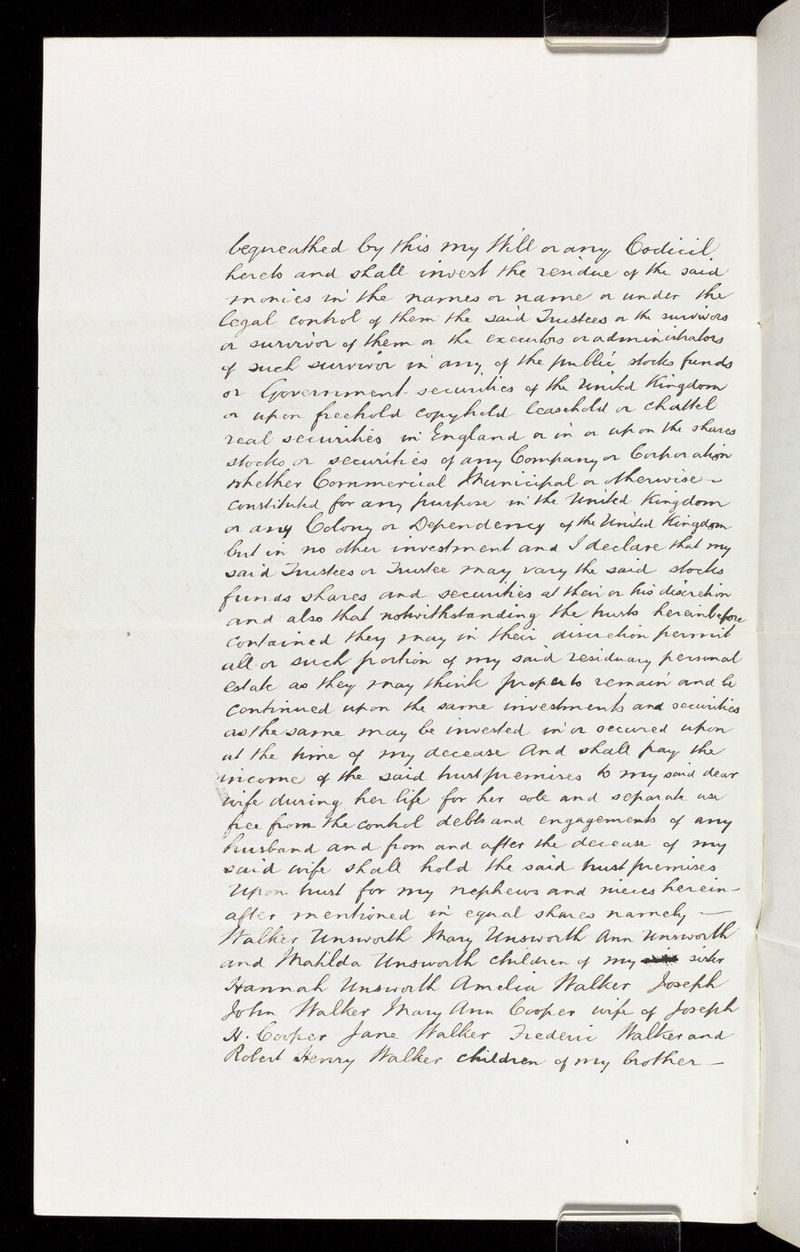 bequeathed by this my Will or any Codicil
hereto and shall invest the residue of the said
monies in the names or name or under the
legal control of them the said Trustees or the survivors
or survivor of them or the executors or administrators
of such survivor in any of the public stocks funds
or Government securities of the United Kingdom
or upon freehold copyhold leasehold or chattel
real securities in England or in or upon the shares
stocks or securities of any Company or Corporation
whether Commercial Municipal or otherwise -
constituted for any purpose in the United Kingdom
or any Colony or Dependency of the United Kingdom
but in no other investment and I declare that my
said Trustees or Trustee may vary the said stocks
funds shares and securities at their or his discretion
and also that notwithstanding the trusts hereinbefore
contained they may in their discretion permit
all or such portion of my said residuary personal
estate as they may think proper to remain and be
continued upon the same investments and securities
as the same may be invested in or secured upon
at the time of my decease And shall pay the
income of the said trust premises to my said dear
wife during her life for her sole and separate use
free from the control debts and engagements of any
husband and from and after the decease of my
said wife shall hold the said trust premises
Upon trust for my nephews and nieces herein-
after mentioned in equal shares namely —
Walker Unsworth Mary Unsworth Ann Unsworth
and Matilda Unsworth children of my sister
Hannah Unsworth Amelia Walker Joseph
John Walker Mary Ann Cooper wife of Joseph
H. Cooper Jane Walker Frederic Walker and
Robert Henry Walker children of my brother —